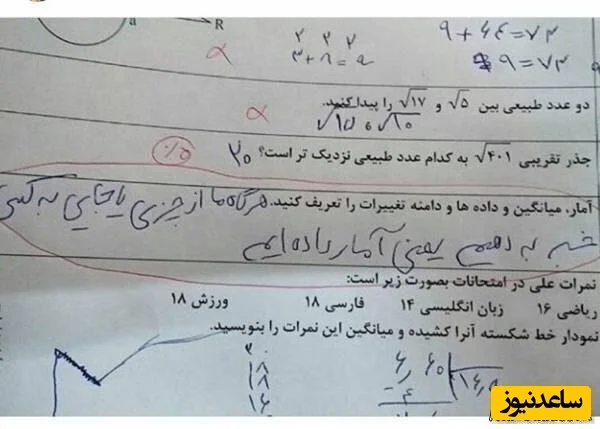 a
R
۹ + ۶۴ = ۷۳
۹ = ۷۳
۲ ۲ ۲
۳ + ۸ = ۹
دو عدد طبیعی بین √۵ و √۱۷ را پیدا کنید.
√۱۵ و √۱۰
جذر تقریبی √۴۰۱ به کدام عدد طبیعی نزدیک تر است؟ ۲۰
آمار، میانگین و داده ها و دامنه تغییرات را تعریف کنید. هرگاه ما از چیزی یا جایی به کسی
خبر بدهیم یعنی آمار داده ایم
نمرات علی در امتحانات بصورت زیر است:
ریاضی ۱۶ زبان انگلیسی ۱۴ فارسی ۱۸ ورزش ۱۸
نمودار خط شکسته آنرا کشیده و میانگین این نمرات را بنویسید.
۲۰
۱۸
۱۶
ساعدنیوز